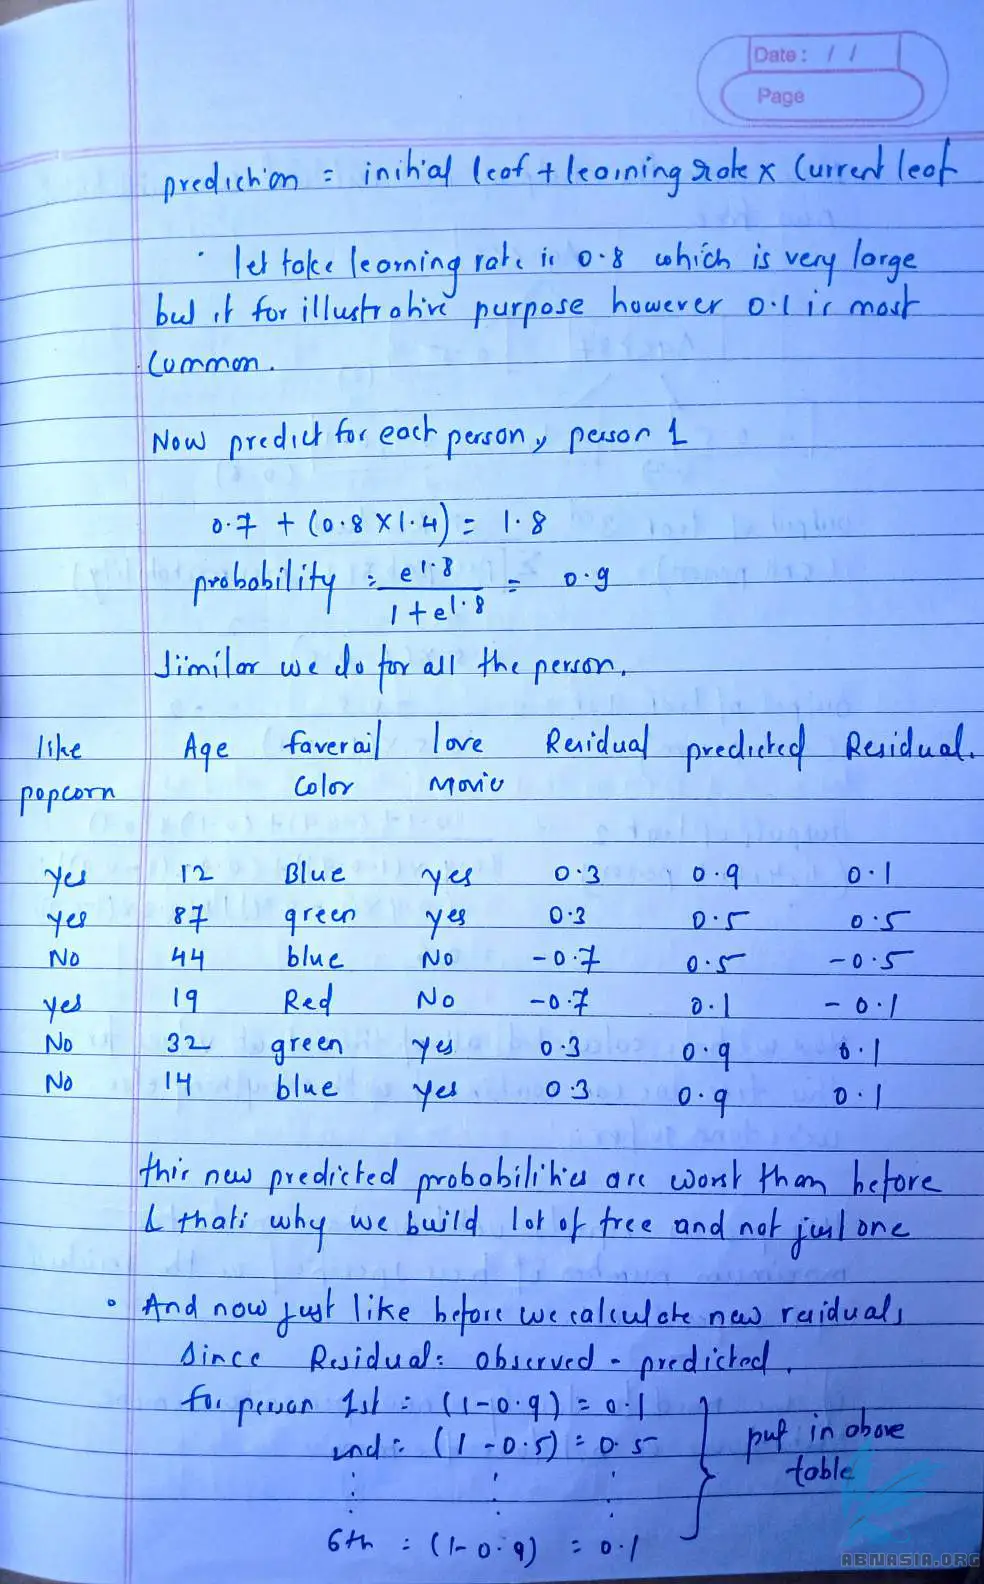 Date: / /
Page
prediction = initial leaf + learning rate x Current leaf
• let take learning rate is 0.8 which is very large
but it for illustrative purpose however 0.1 is most
Common.
Now predict for each person, person 1
0.7 + (0.8 x 1.4) = 1.8
probability = e^1.8 / 1 + e^1.8 = 0.9
Similar we do for all the person.
like popcorn Age faverail Color love Movie Residual predicted Residual.
yes 12 Blue yes 0.3 0.9 0.1
yes 87 green yes 0.3 0.5 0.5
No 44 blue No -0.7 0.5 -0.5
yes 19 Red No -0.7 0.1 -0.1
No 32 green yes 0.3 0.9 0.1
No 14 blue yes 0.3 0.9 0.1
this new predicted probabilities are worst than before
& thats why we build lot of tree and not just one
• And now just like before we calculate new residuals
Since Residual = observed - predicted.
for person 1st = (1-0.9) = 0.1
2nd = (1-0.5) = 0.5
put in above
table
6th = (1-0.9) = 0.1
ABNASIA.ORG